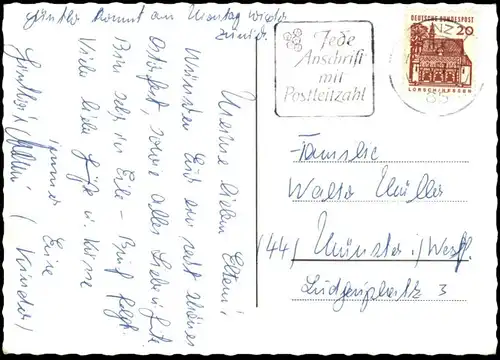 Günter kommt am Montag wieder
zurück
Meine lieben Eltern!
Wünschen Euch ein recht schönes
Osterfest, sowie alles Liebe u. Gute
Bin sehr in Eile - Brief folgt.
Viele liebe Grüße u. Küsse
immer Eure
Kinder
Jede
Anschrift
mit
Postleitzahl
NZ
85
DEUTSCHE BUNDESPOST
20
LORSCH/HESSEN
Familie
Walter Müller
(44) Münster i/Westf.
Ludgeriplatz 3